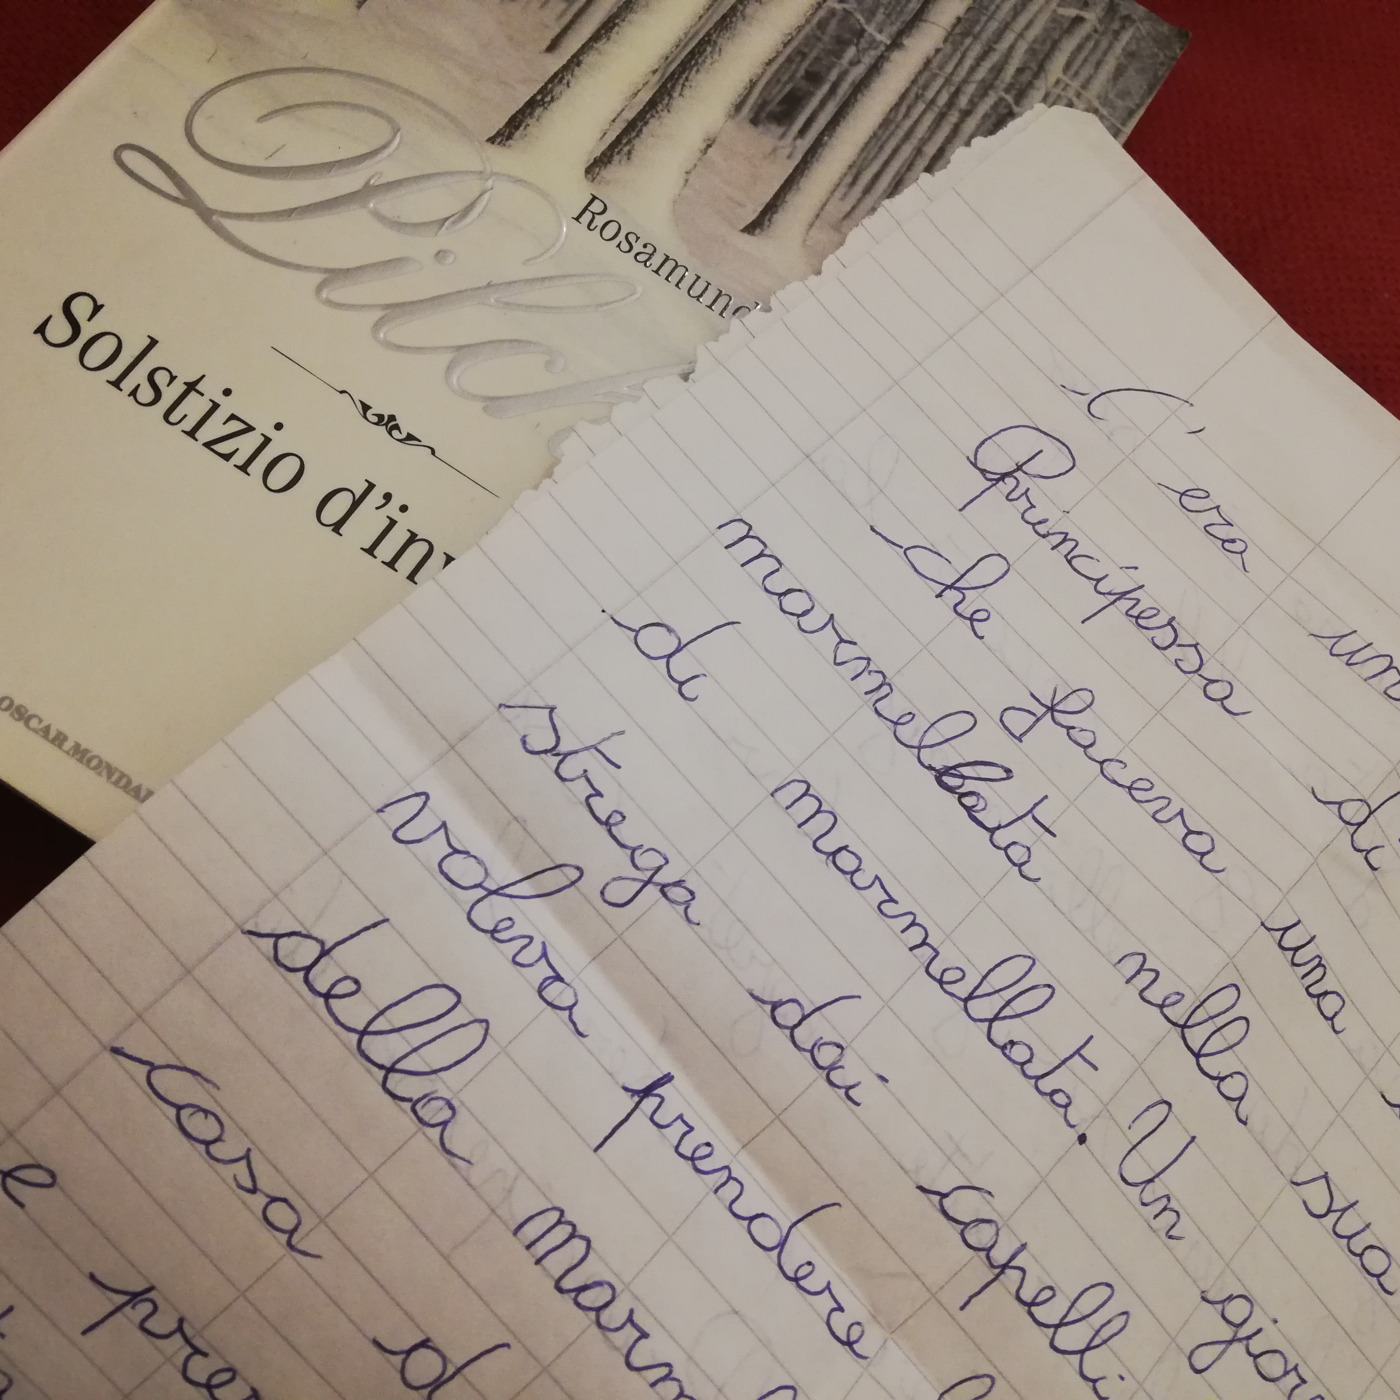 Rosamund
Pilc
Solstizio d'inv
OSCAR MONDA
C'era un
Principessa di
che faceva una
marmelbata nella sua
di marmellata. Un gior
strega dai capelli
voleva prendere
della marm
casa d
e pre